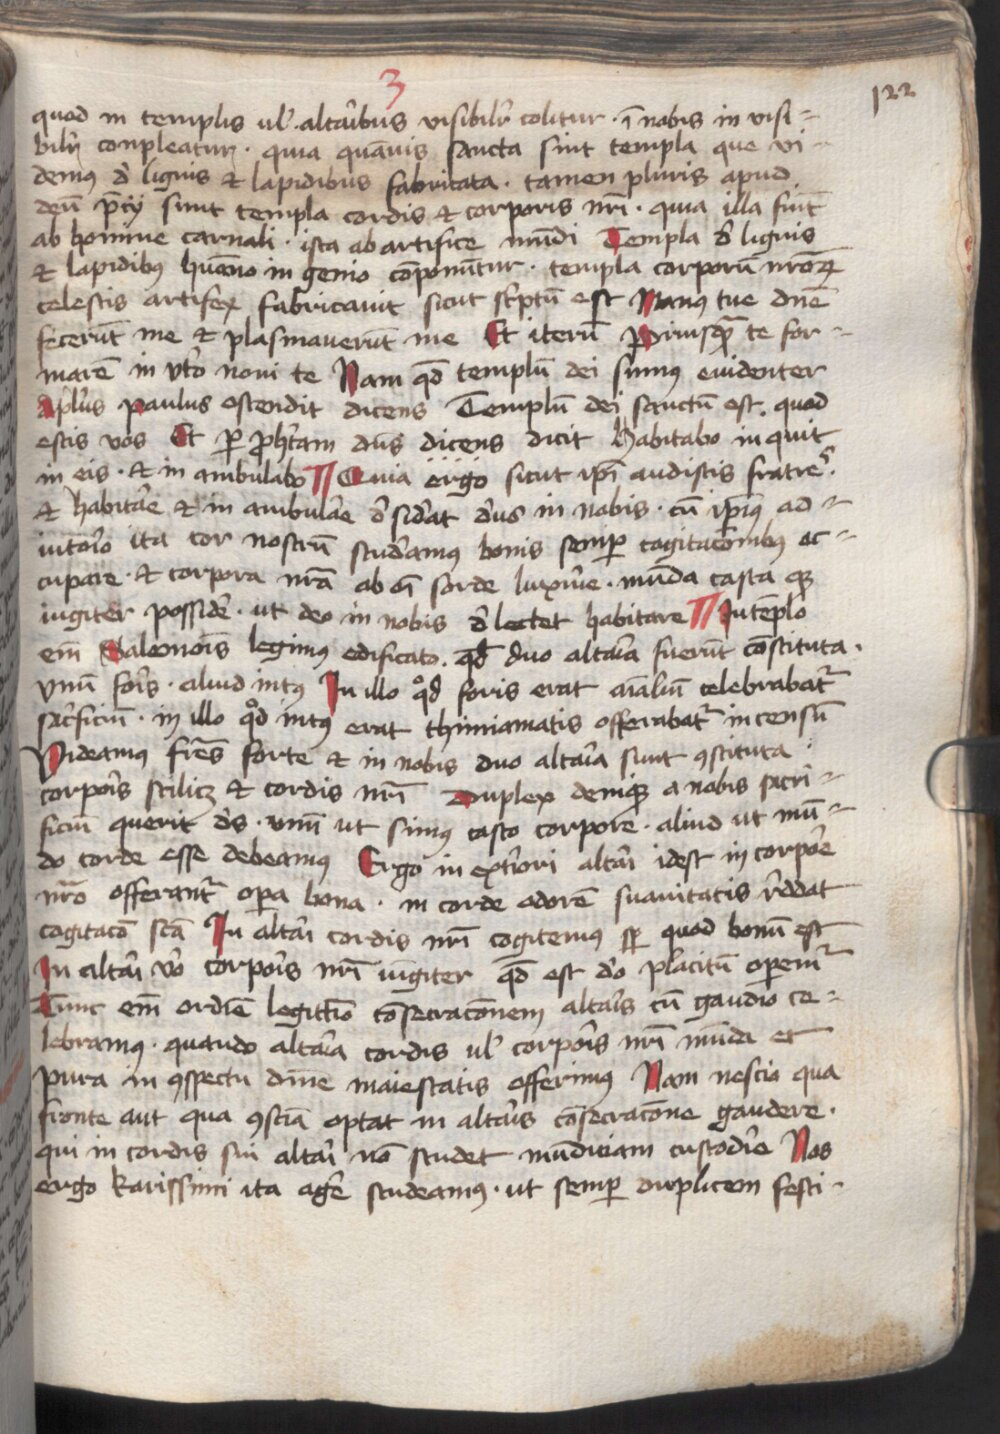 3
122
quod in templis ul altaribus visibilr colitur · ī nobis in visi-
bilr conpleatur · quia quāuis sancta sint templa que vi-
demus d lignis et lapidibus fabricata · tamen pluris apud
deū p̄cij sunt templa cordis et corporis nr̄i · quia illa fiūt
ab homine carnali · ista ab artifice mūdi Templa d lignis
et lapidibus huāno in genio cōponūtur · templa corporū nr̄oꝝ
celestis artifex fabricauit sicut scptū est Manus tue dn̄e
fecerūt me et plasmauerūt me Et iterū Priusqꝫ te for-
marē in vto noui te Nam qd̄ templū dei sumus euidenter
Aplus paulus ostendit dicens Templū dei sanctū est · quod
estis vos Et ꝑ ꝓhtam dn̄s dicens dicit habitabo in quit
in eis · et in ambulabo ¶ Quia ergo sicut ip̄i audistis fratres ·
et habitare et in ambulare dsiderat deus in nobis · cū ip̄ius ad-
iutorio ita cor nostrū studeamus bonis semꝑ cogitacōnibus oc-
cupare · et corpora nrā ab oī sorde luxurie · mūda casta qꝫ
iugiter possider · ut deo in nobis dlectet habitare ¶ In tēplo
em̄ Salemois legimus edificato · qd̄ duo altaria fuerūt cōstituta ·
vnū foris · aliud intus In illo qd̄ foris erat aīaliū celebrabatr
sacrficiū · in illo qd̄ intus erat thimiamatis offerabatr incensū
Videamus frēs forte et in nobis duo altaria sunt ꝯstituta
corporis scilicꝫ et cordis nr̄i Duplex deniqꝫ a nobis sacri-
ficiū querit ds · vnū ut simus casto corpore · aliud ut mū-
do corde esse debeamus Ergo in exteriori altari idest in corpore
nr̄o offerantr opa bona · in corde odorē suauitatis rddat
cogitacō scā In altari cordis nr̄i cogitemus sꝑ quod bonū est
In altari vo corporis nr̄i iugiter qd̄ est deo placitū operemr
Tunc em̄ ordiē legittīo cōsecracōnem altaris cū gaudio ce-
lebramus · quando altaria cordis ul corporis nr̄i mūda et
pura in ꝯspectu diuine maiestatis offerimus Nam nescio qua
fronte aut qua ꝯsciā optat in altaris cōsecracōne gaudere ·
qui in cordis sui altari nō studet mūdiciam custodire Nos
ergo karissimi ita agere studeamus · ut semꝑ duplicem festi-